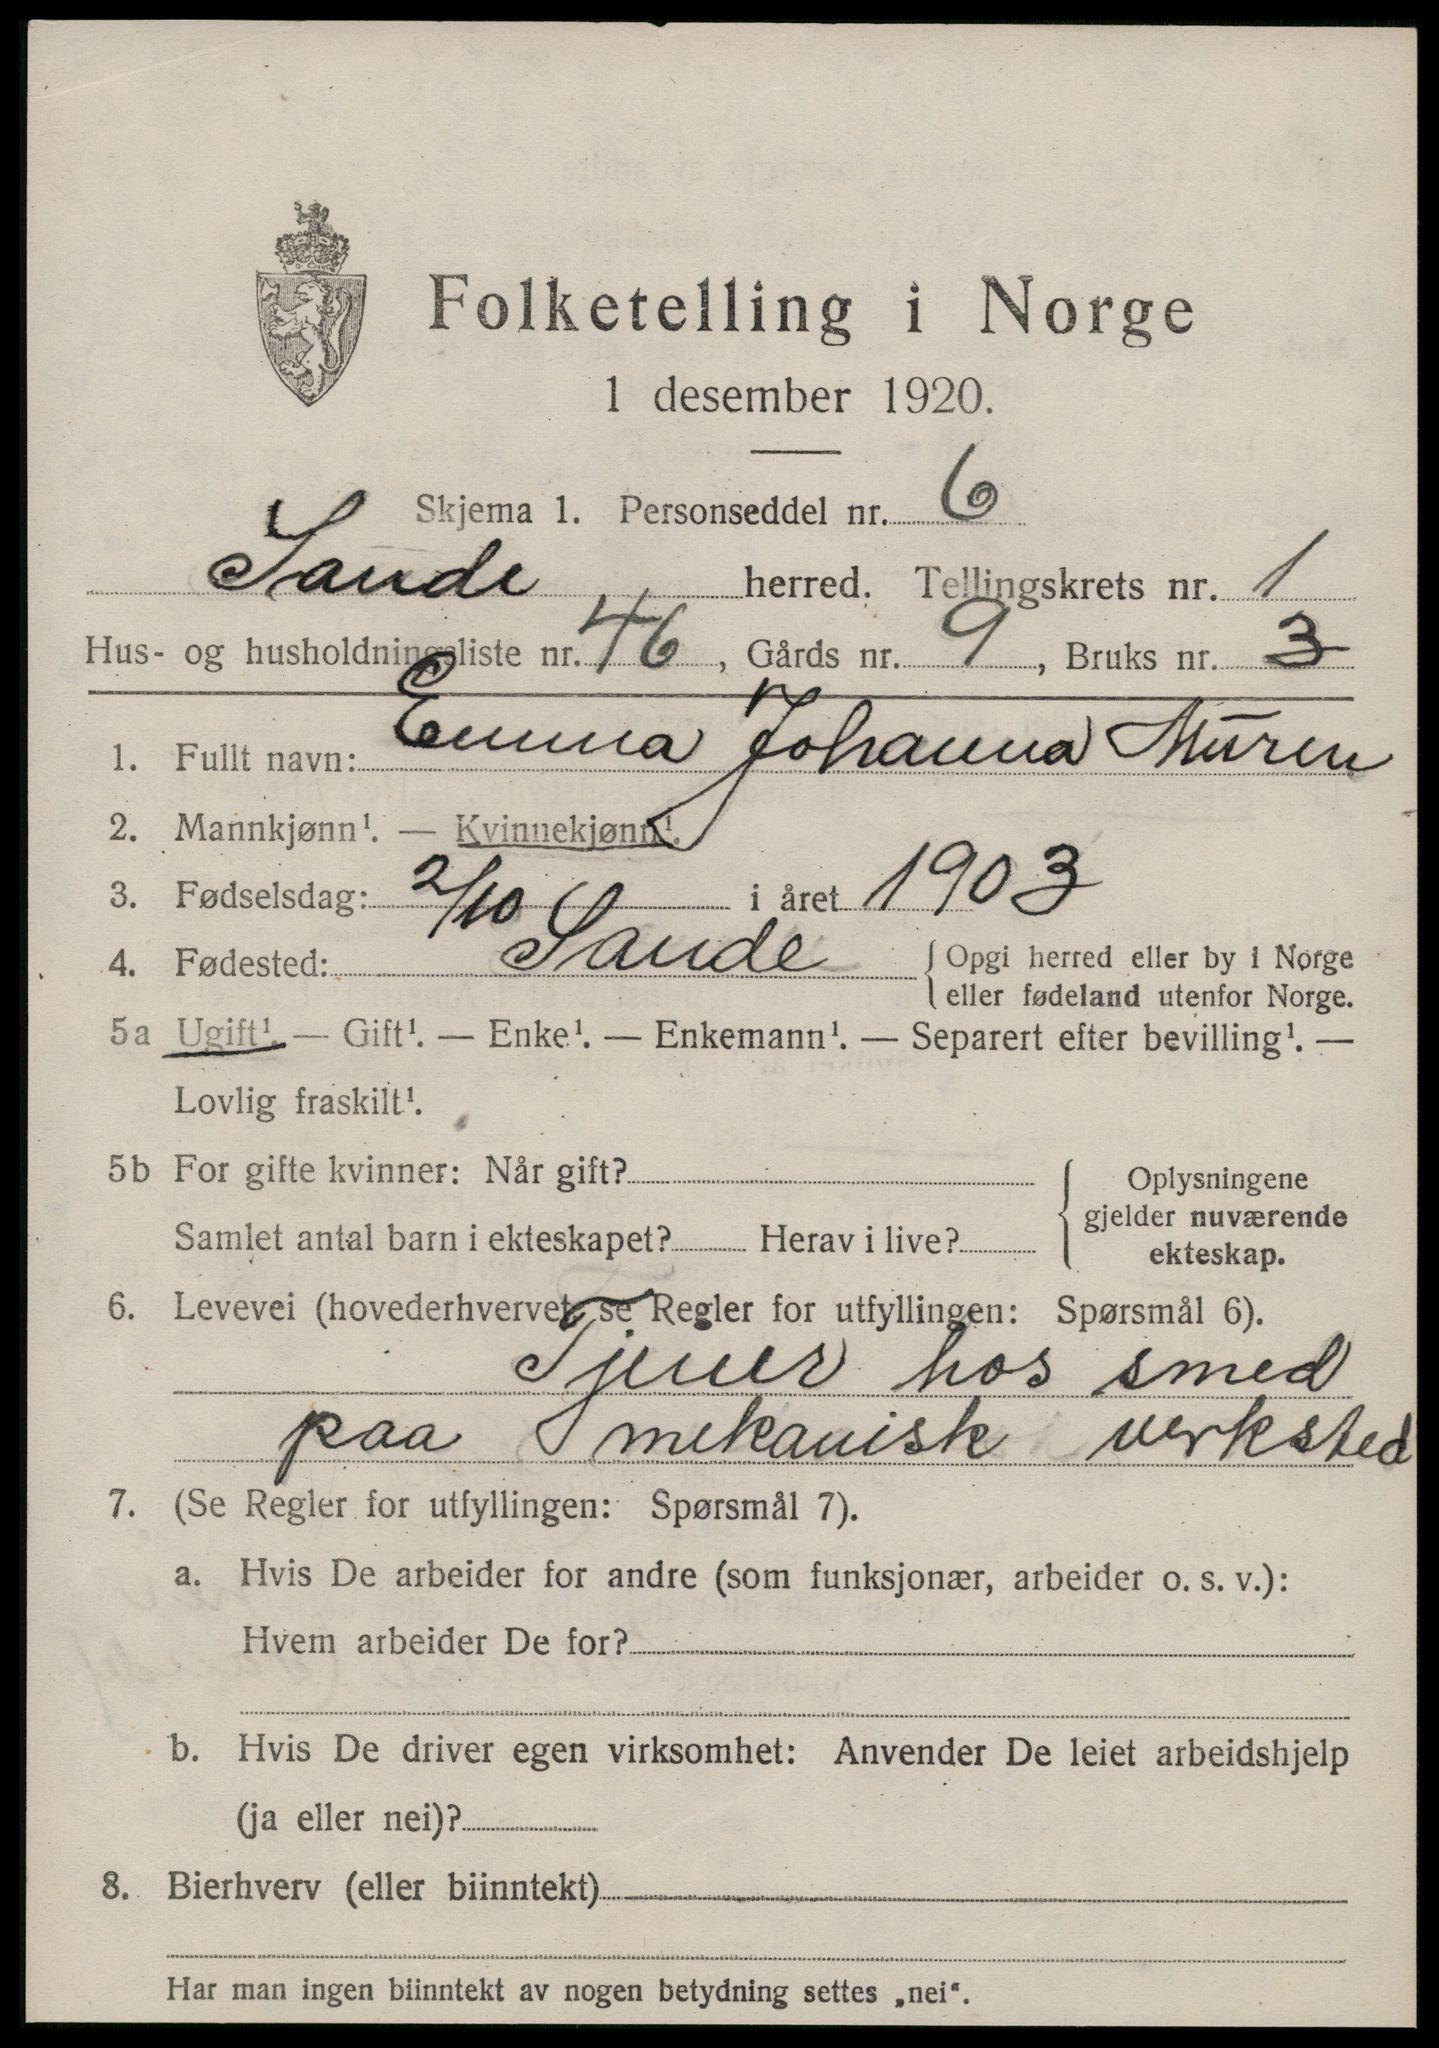 Folketelling i Norge
1 desember 1920.
Skjema 1. Personseddel nr. 6
Sande herred. Tellingskrets nr. 1
Hus- og husholdningsliste nr. 46, Gårds nr. 9, Bruks nr. 3
1. Fullt navn: Emma Johanna Muren
2. Mannkjønn¹. — Kvinnekjønn¹.
3. Fødselsdag: 2/10 i året 1903
4. Fødested: Sande { Opgi herred eller by i Norge
eller fødeland utenfor Norge.
5a Ugift¹. — Gift¹. — Enke¹. — Enkemann¹. — Separert efter bevilling¹. —
Lovlig fraskilt¹.
5b For gifte kvinner: Når gift?
Samlet antal barn i ekteskapet? Herav i live?
Oplysningene
gjelder nuværende
ekteskap.
6. Levevei (hovederhvervet, se Regler for utfyllingen: Spørsmål 6).
Tjener hos smed
paa mekanisk verksted
7. (Se Regler for utfyllingen: Spørsmål 7).
a. Hvis De arbeider for andre (som funksjonær, arbeider o. s. v.):
Hvem arbeider De for?
b. Hvis De driver egen virksomhet: Anvender De leiet arbeidshjelp
(ja eller nei)?
8. Bierhverv (eller biinntekt)
Har man ingen biinntekt av nogen betydning settes „nei“.